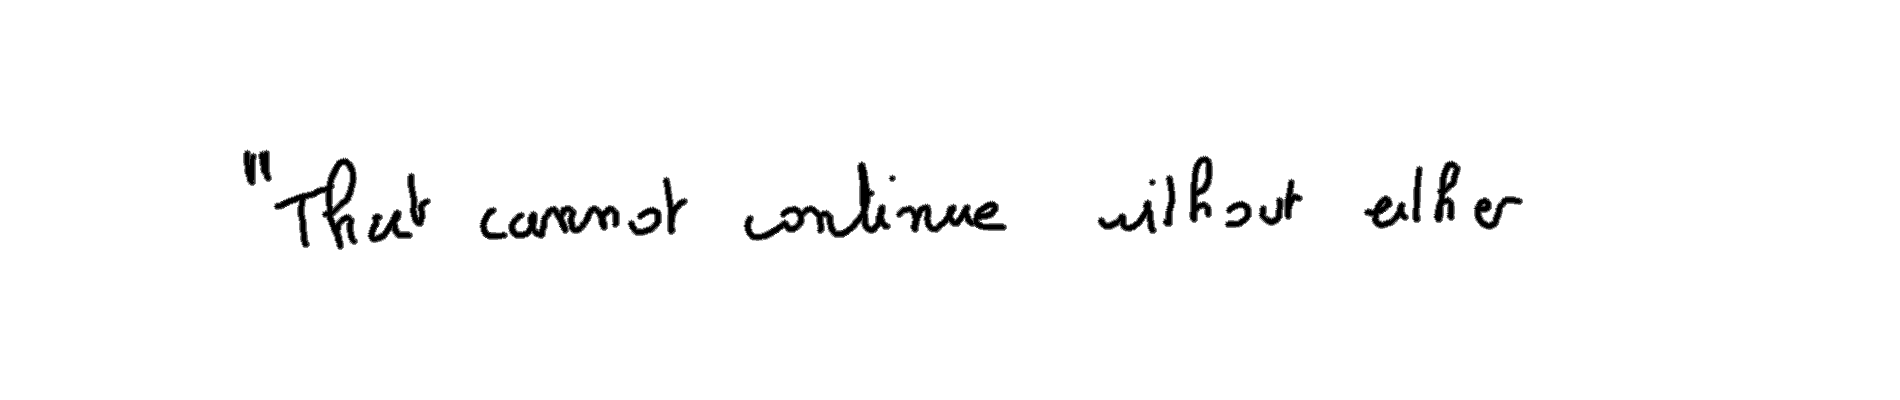 "That cannot continue without either